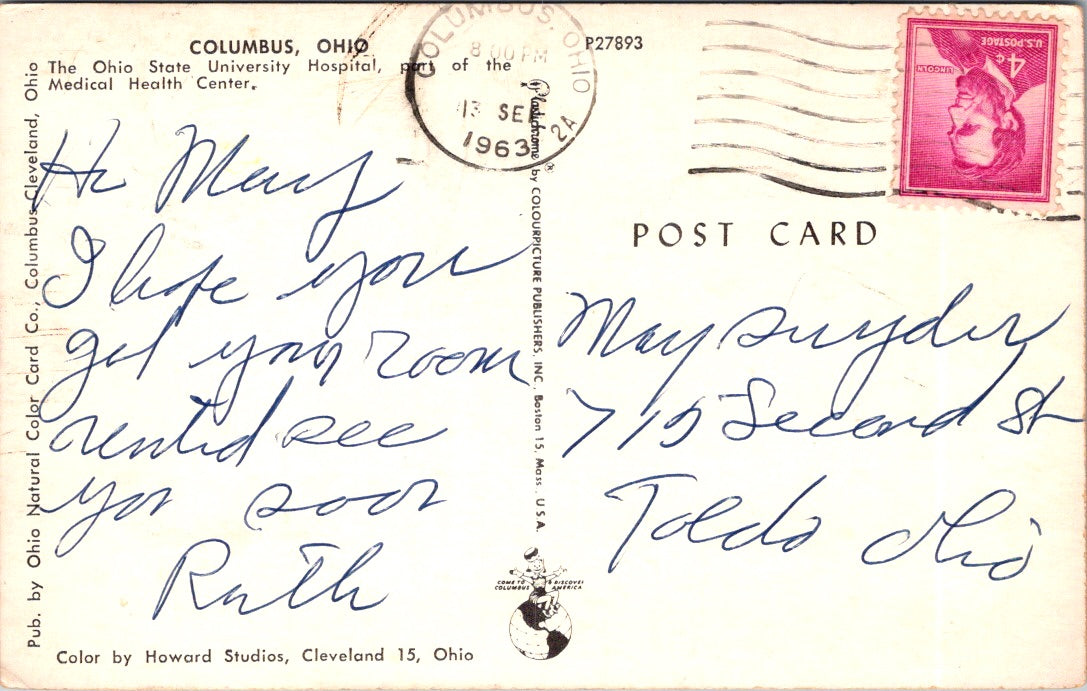 COLUMBUS, OHIO
The Ohio State University Hospital, part of the
Medical Health Center.
P27893
COLUMBUS, OHIO
8 00 PM
13 SEP
1963
2A
U.S. POSTAGE
4c
LINCOLN
POST CARD
Hi Mary
I hope you
get your room
rented see
you soon
Ruth
May Snyder
715 Second St
Toledo Ohio
Plastichrome ® by COLOURPICTURE PUBLISHERS, INC., Boston 15, Mass., U.S.A.
COME TO COLUMBUS & DISCOVER AMERICA
Pub. by Ohio Natural Color Card Co., Columbus-Cleveland, Ohio
Color by Howard Studios, Cleveland 15, Ohio